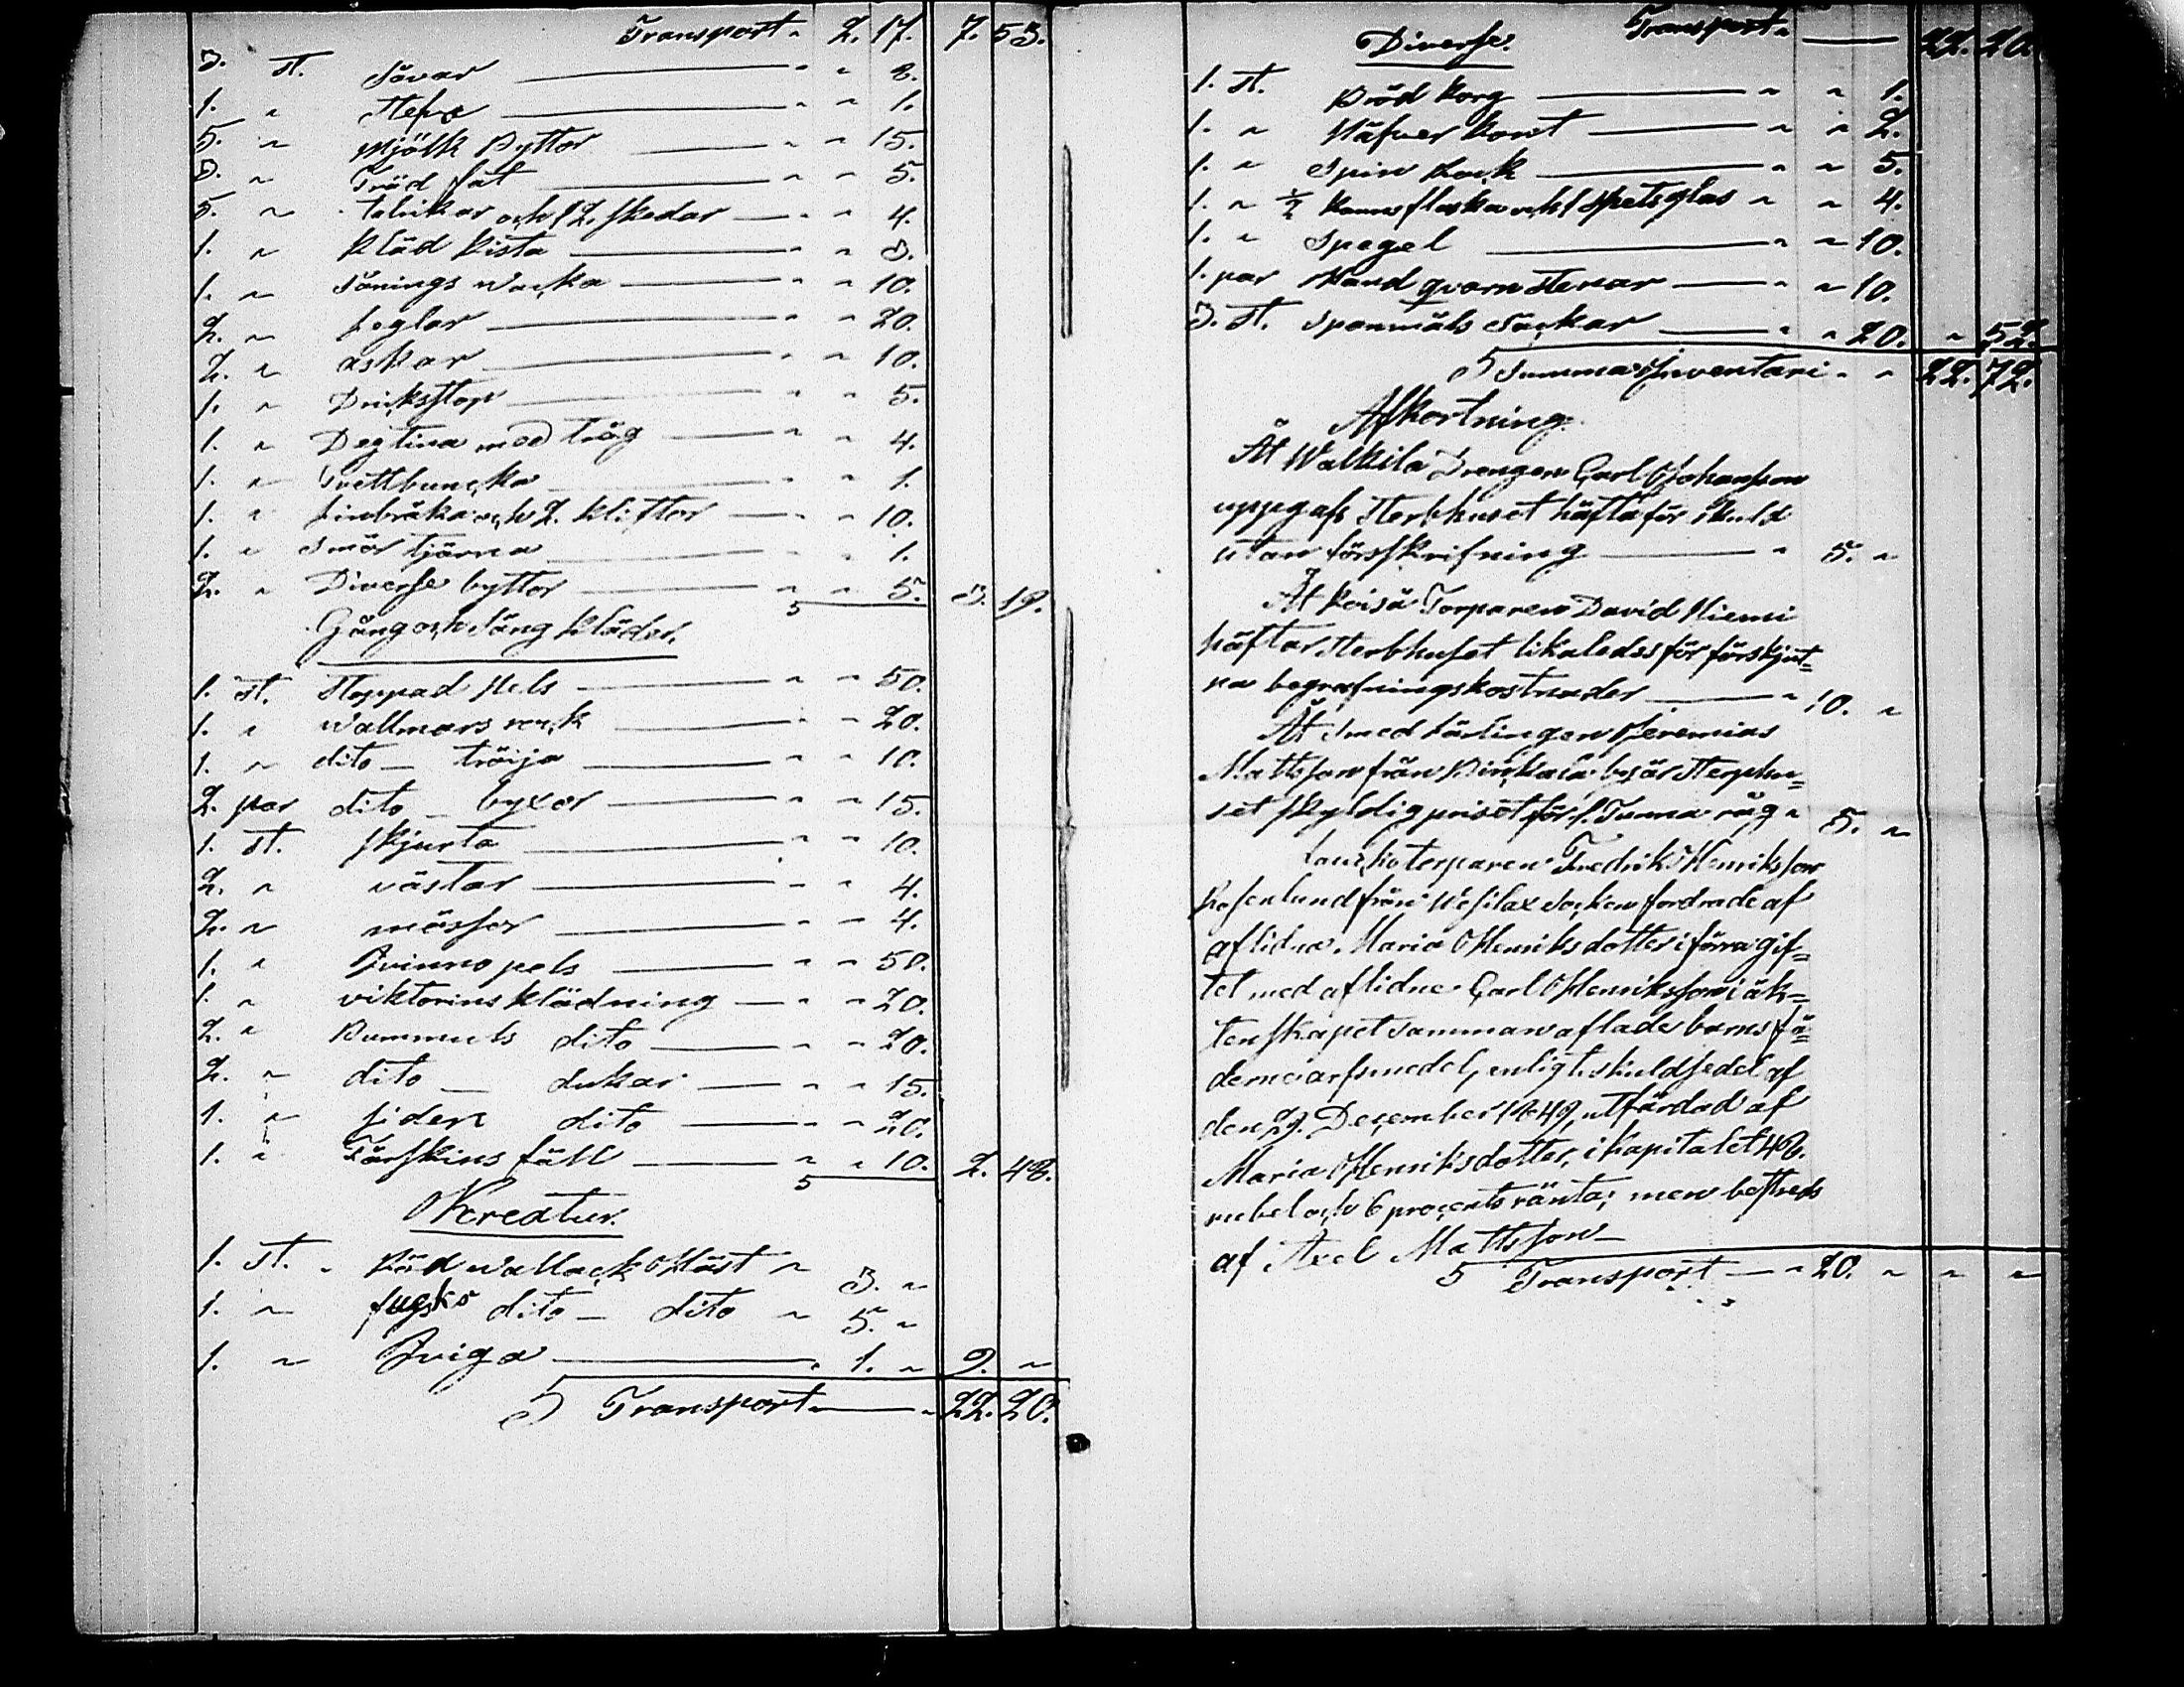 Transport " 2. 17. 7. 53.
3. st. Såvar " " 8.
1. " Stefva " " 1.
5. " Mjölk Byttor " " 15.
3. " Träd fat " " 5.
5. " talrikar och 12. skedar " " 4.
1. " Kläd Kista " " 3.
1. " Sånings wacka " " 10.
2. " Leglar " " 20.
2. " askar " " 10.
1. " Dricksstop " " 5.
1. " Degtina med tråg " " 4.
1. " Tvettbuncka " " 1.
1. " Linbråka och 2. kliftor " " 10.
1. " Smör tjärna " " 1.
2. " Diverse byttor " " 5. 3. 19.
Gång och Säng Kläder.
1. st. Stoppad Pels " " 50.
1. " Wallmars rock " " 20.
1. " dito tröija " " 10.
2. par dito byxor " " 15.
1. st. skjorta " " 10.
2. " västar " " 4.
2. " mössor " " 4.
1. " Qvinno pels " " 50.
1. " viktorins klädning " " 20.
2. " Bummuls dito " " 20.
2. " dito dukar " " 15.
1. " siden dito " " 20.
1. " Fårskins fäll " " 10. 2. 48.
Kreatur.
1. st. " Röd wallack Häst " 3. "
1. " dito dito " 5. "
1. " Qviga " 1. " 9. "
S Transport " 22. 20.
Diverse. Transport " 22. 20.
1. st. Bröd korg " " 1.
1. " Näfver kont " " 2.
1. " Spin Rock " " 5.
1. " ½ kanns flaska och 1 spetsglas " " 4.
1. " Spegel " " 10.
1. par Hand qvarn stenar " " 10.
3. st. Spanmåls Säckar " " 20. " 52.
S Summa Inventarii " " 22. 72.
Afkortning.
Åt Walkila Drengen Carl Johansson
uppgafs Sterbhuset häfta för skuld
utan förskrifning " 5. "
Åt Torparen David Niemi
häftar Sterbhuset likaledes för förskjut=
na begrafningskostnader " 10. "
Åt Smed Lärlingen Jeremias
Mattsson från Birkala by är Sterbhu=
set skyldig priset för 1. Tunna råg " 5. "
torparen Fredrik Henriksson
Rosenlund från Wesilax Socken fordrade af
aflidna Maria Henriksdotter i förra gif=
tet med aflidne Carl Henriksson i äk=
tenskapet samman aflade barns fä=
derne arfsmedel, enligt skuldsedel af
den 29. December 1849, utfärdad af
Maria Henriksdotter, i kapitalet 48.
rubel och 6 procents ränta; men bestreds
af Axel Mattsson
S Transport " 20. " " "